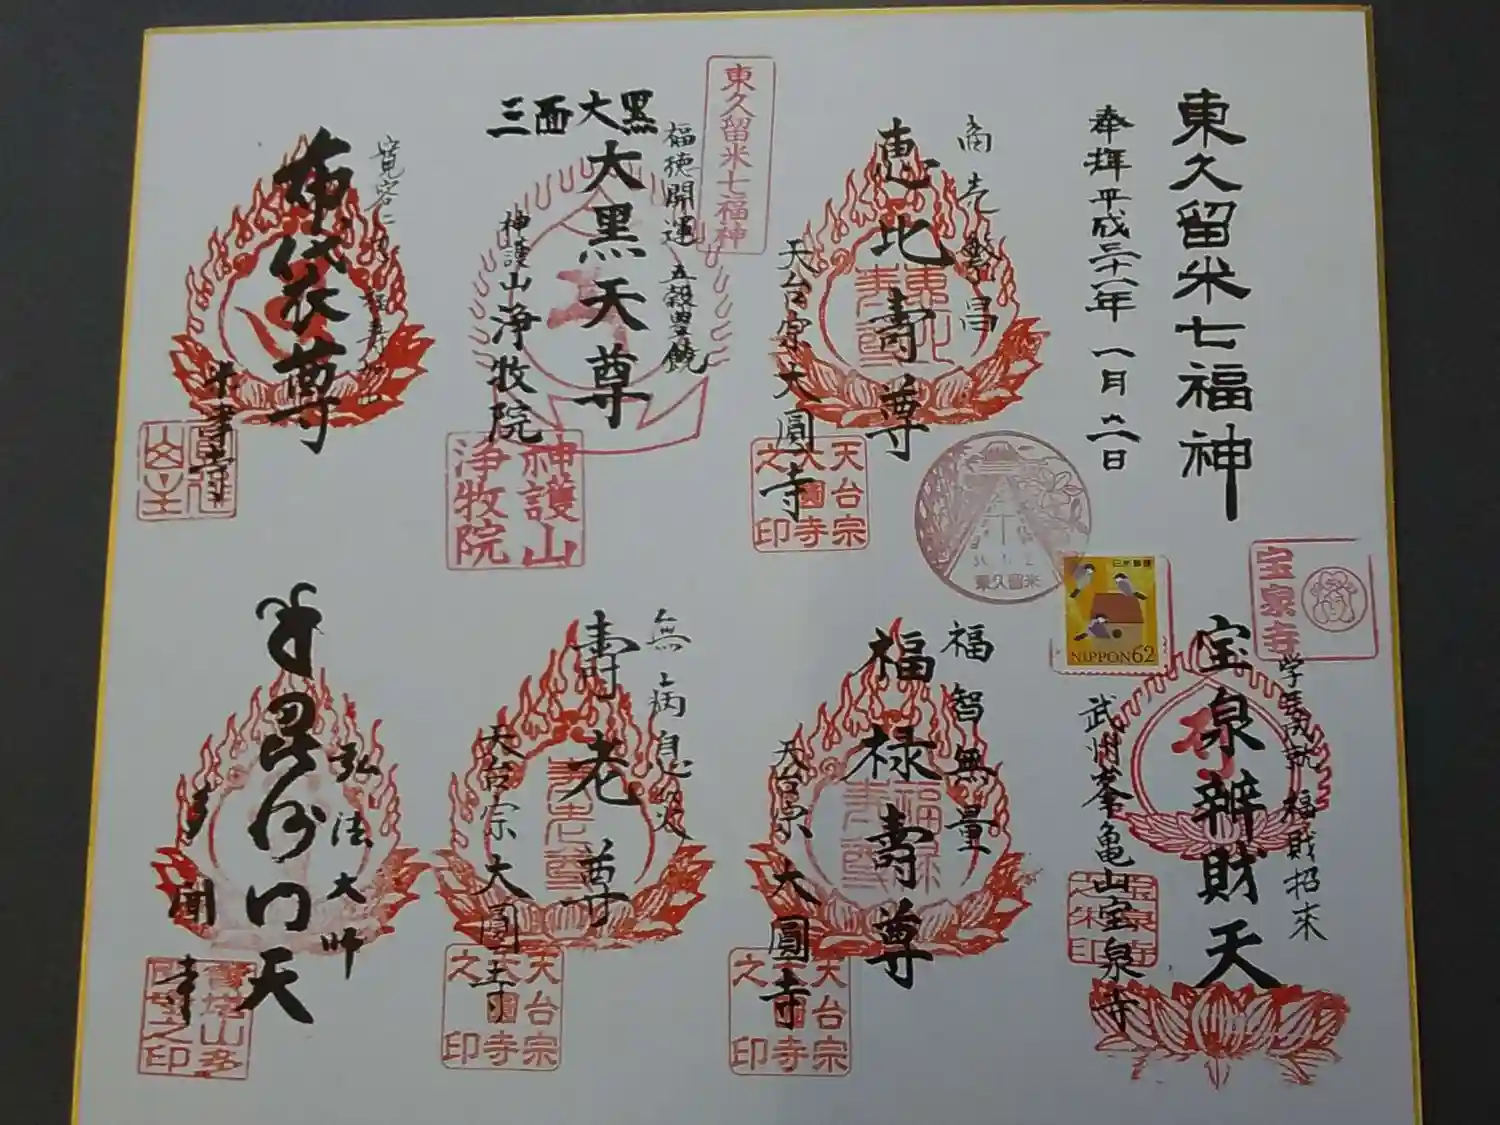 東久留米七福神
奉拝平成三十一年一月二日
商売繁昌
恵比寿尊
天台宗大圓寺
天台宗大圓寺之印
東久留米七福神
三面大黒
福徳開運五穀豊饒
大黒天尊
神護山浄牧院
神護山浄牧院
寛容
布袋尊
東久留米
日本郵便
NIPPON62
宝泉寺
学業成就福財招来
宝泉辨財天
武州峯亀山宝泉寺
福智無量
福禄寿尊
天台宗大圓寺
天台宗大圓寺之印
無病息災
壽老尊
天台宗大圓寺
天台宗大圓寺之印
弘法大師
毘沙門天
多聞寺